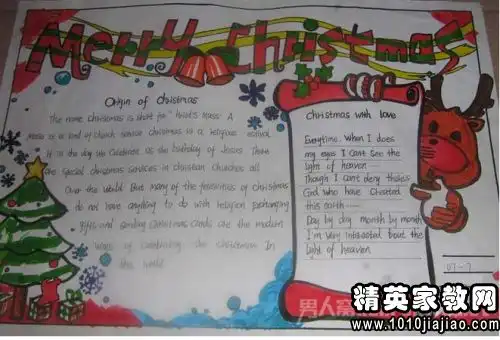 Merry Christmas
Origin of christmas
The name christmas is short for "hrist's mass" A
mass is a kind of church service christmas is a religious
It is the day we celebrate as the birthday of Jesus There
are special christmas services in christian churches all
Over the world But many of the festivities of christmas
do not have anything to do with religion
gifts and sending Christmas cards are the modern
ways of the christmas In
this world
christmas with love
Everytime When I does
my eyes I can't see the
light of heaven
Though I can't deny
God who have created
this earth
Day by day month by month
I'm very 'bout the
light of heaven
精英家教网
www.1010jiajiao.com